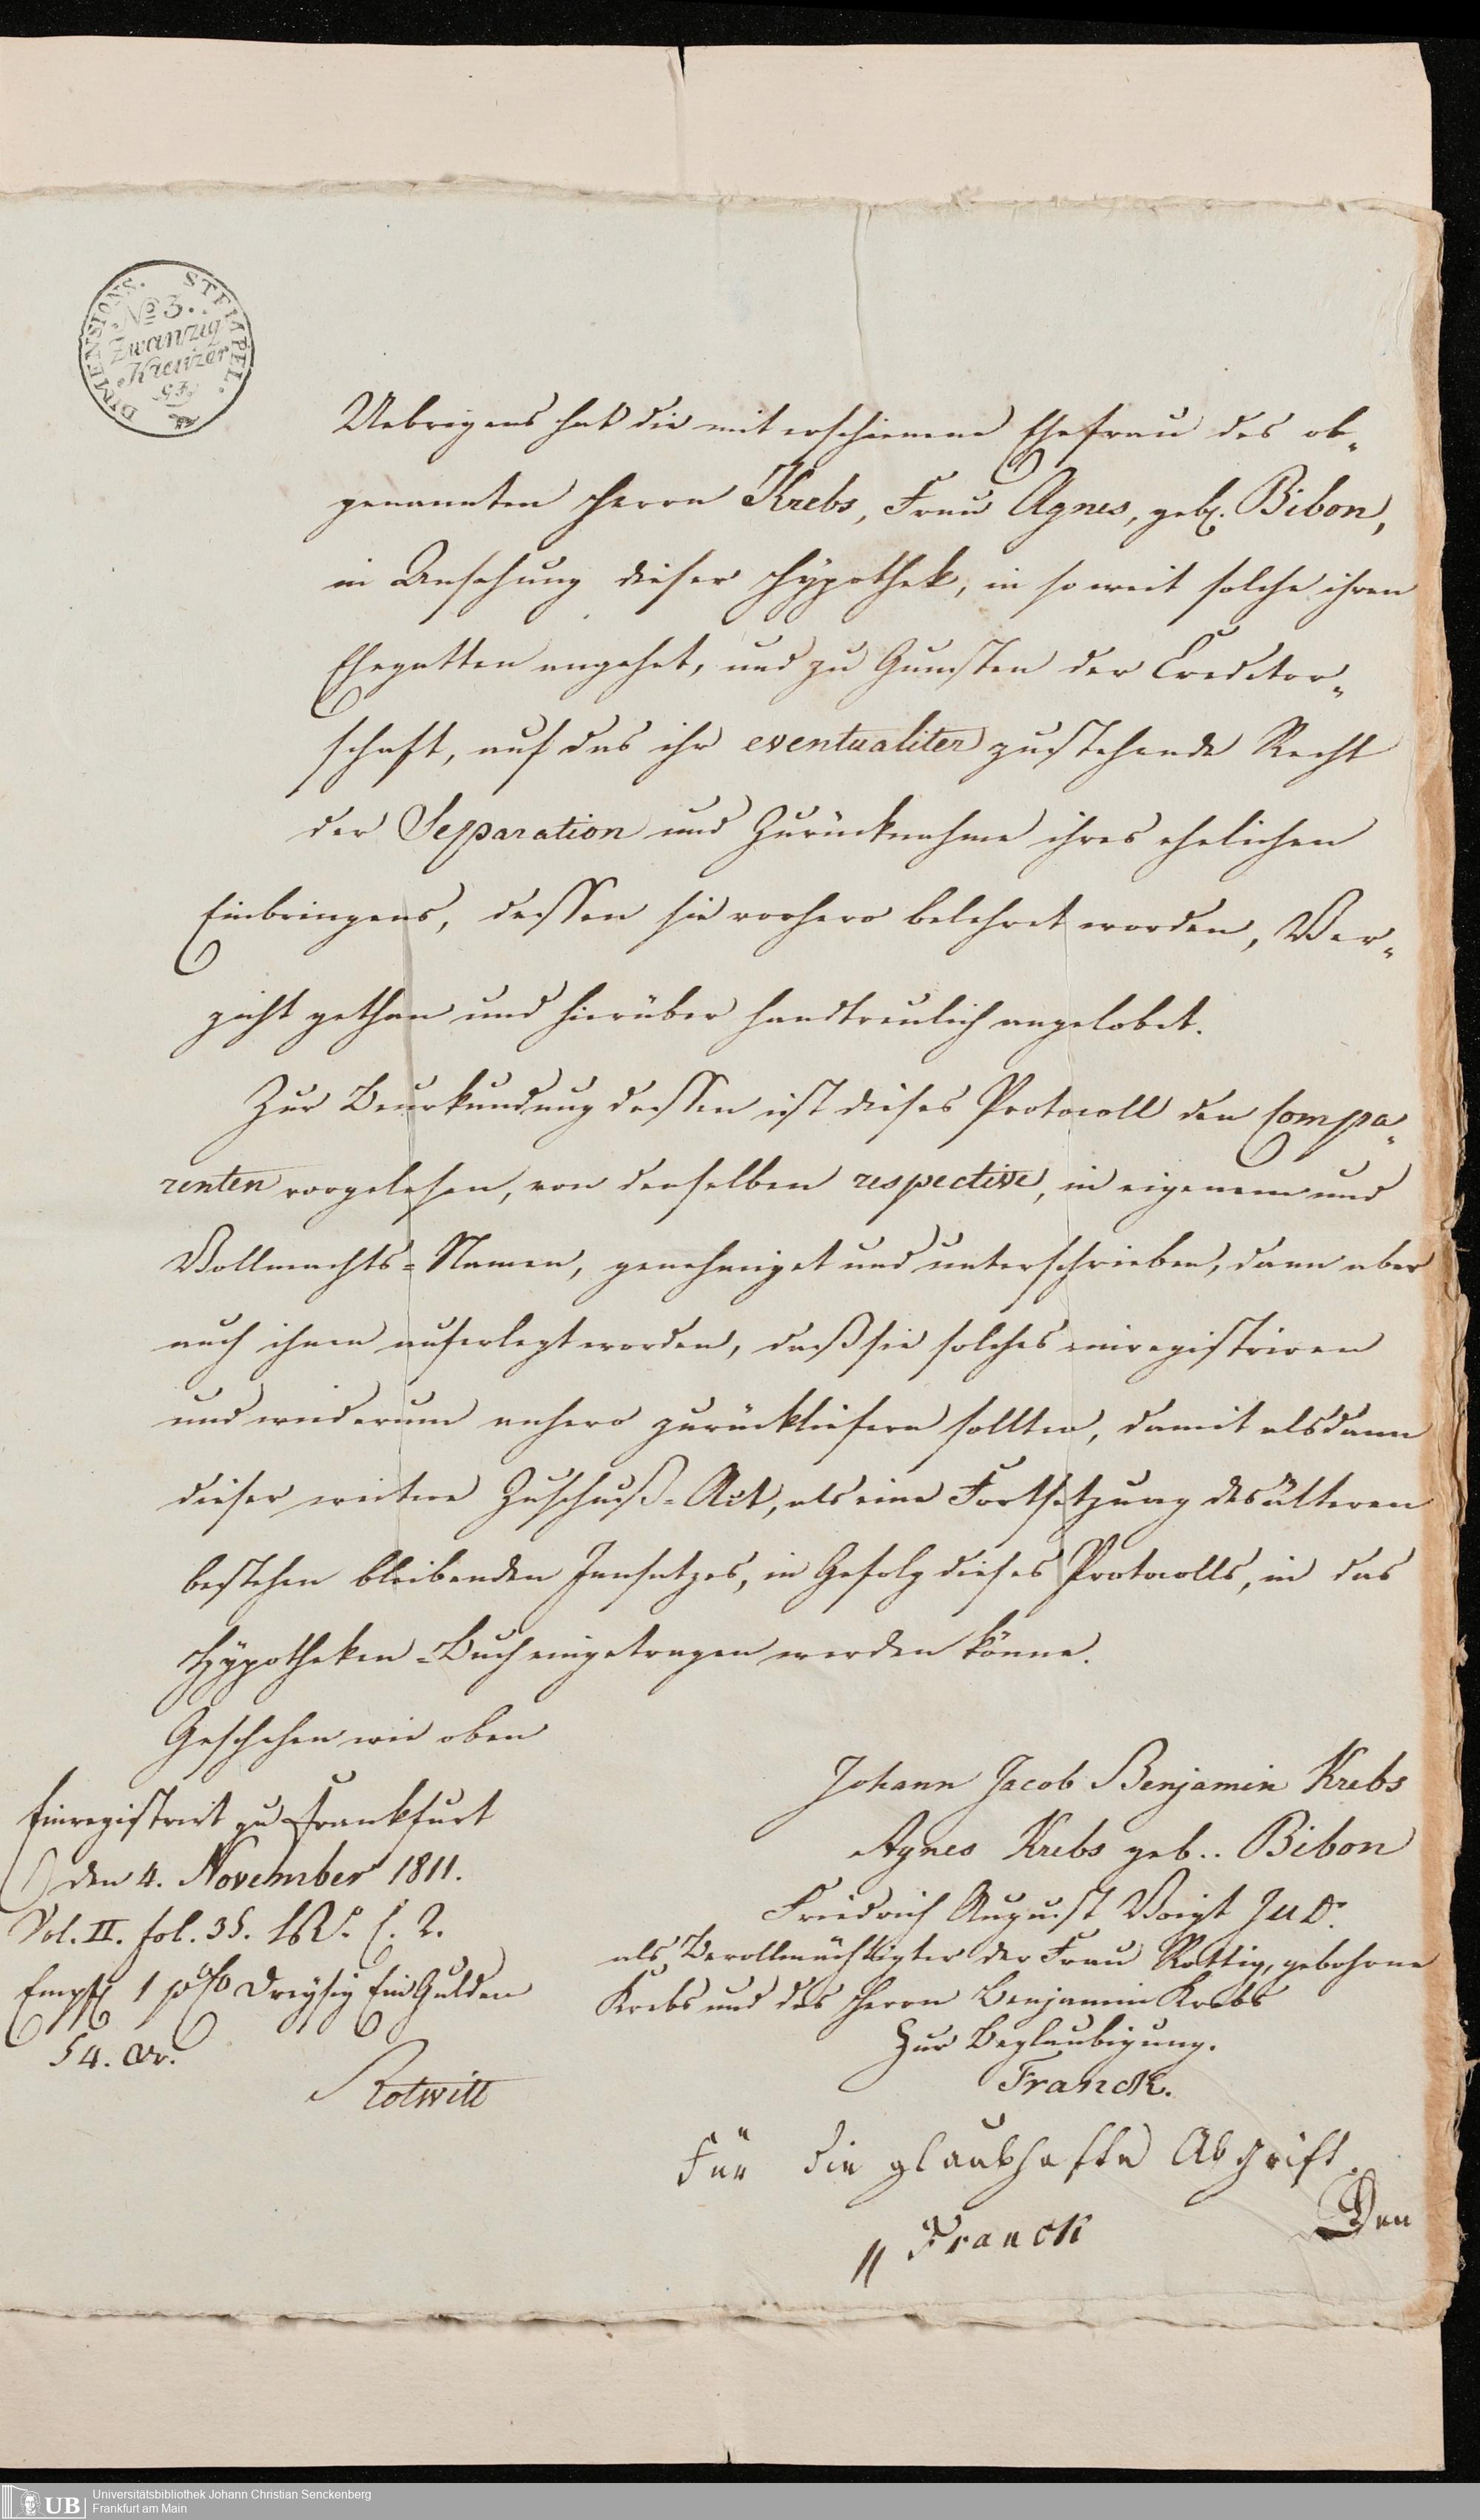 DIMENSIONS. STEMPEL.
No 3.
Zwanzig
Kreuzer
Uebrigens hat die mit erschienene Ehefrau des ob„
genannten Herrn Krebs, Frau Agnes, geb. Bibon,
in Ansehung dieser Hypothek, in so weit solche ihren
Ehegatten angehet, und zu Gunsten der Creditor„
schaft, auf das ihr eventualiter zustehende Recht
der Separation und Zurücknahme ihres ehelichen
Einbringens, dessen sie vorhero belehret worden, Ver„
zicht gethan und hierüber handtreulich angelobet.
Zur Beurkundung dessen ist dieses Protocoll den Compa„
renten vorgelesen, von denselben respective, in eigenem und
Vollmachts=Namen, genehmiget und unterschrieben, dann aber
auch ihnen auferlegt worden, daß sie solches einregistriren
und wiederum anhero zurückliefern sollten, damit alsdann
dieser weitere Zuschuß=Act, als eine Fortsetzung des älteren
bestehen bleibenden Insatzes, in Gefolg dieses Protocolls, in das
Hypotheken=Buch eingetragen werden könne.
Geschehen wie oben
Johann Jacob Benjamin Krebs
Agnes Krebs geb.. Bibon
Friedrich August Voigt JUD.
als Bevollmächtigter der Frau Rottig, gebohrne
Krebs und des Herrn Benjamin Krebs
Zur Beglaubigung.
Franck.
Einregistrirt zu Frankfurt
den 4. November 1811.
Vol. II. fol. 35. C. 2.
Empf. 1 Dreysig Ein Gulden
54. xr.
Rotwitt
Für die glaubhafte Abschrift.
Franck
Den
UB
Universitätsbibliothek Johann Christian Senckenberg
Frankfurt am Main